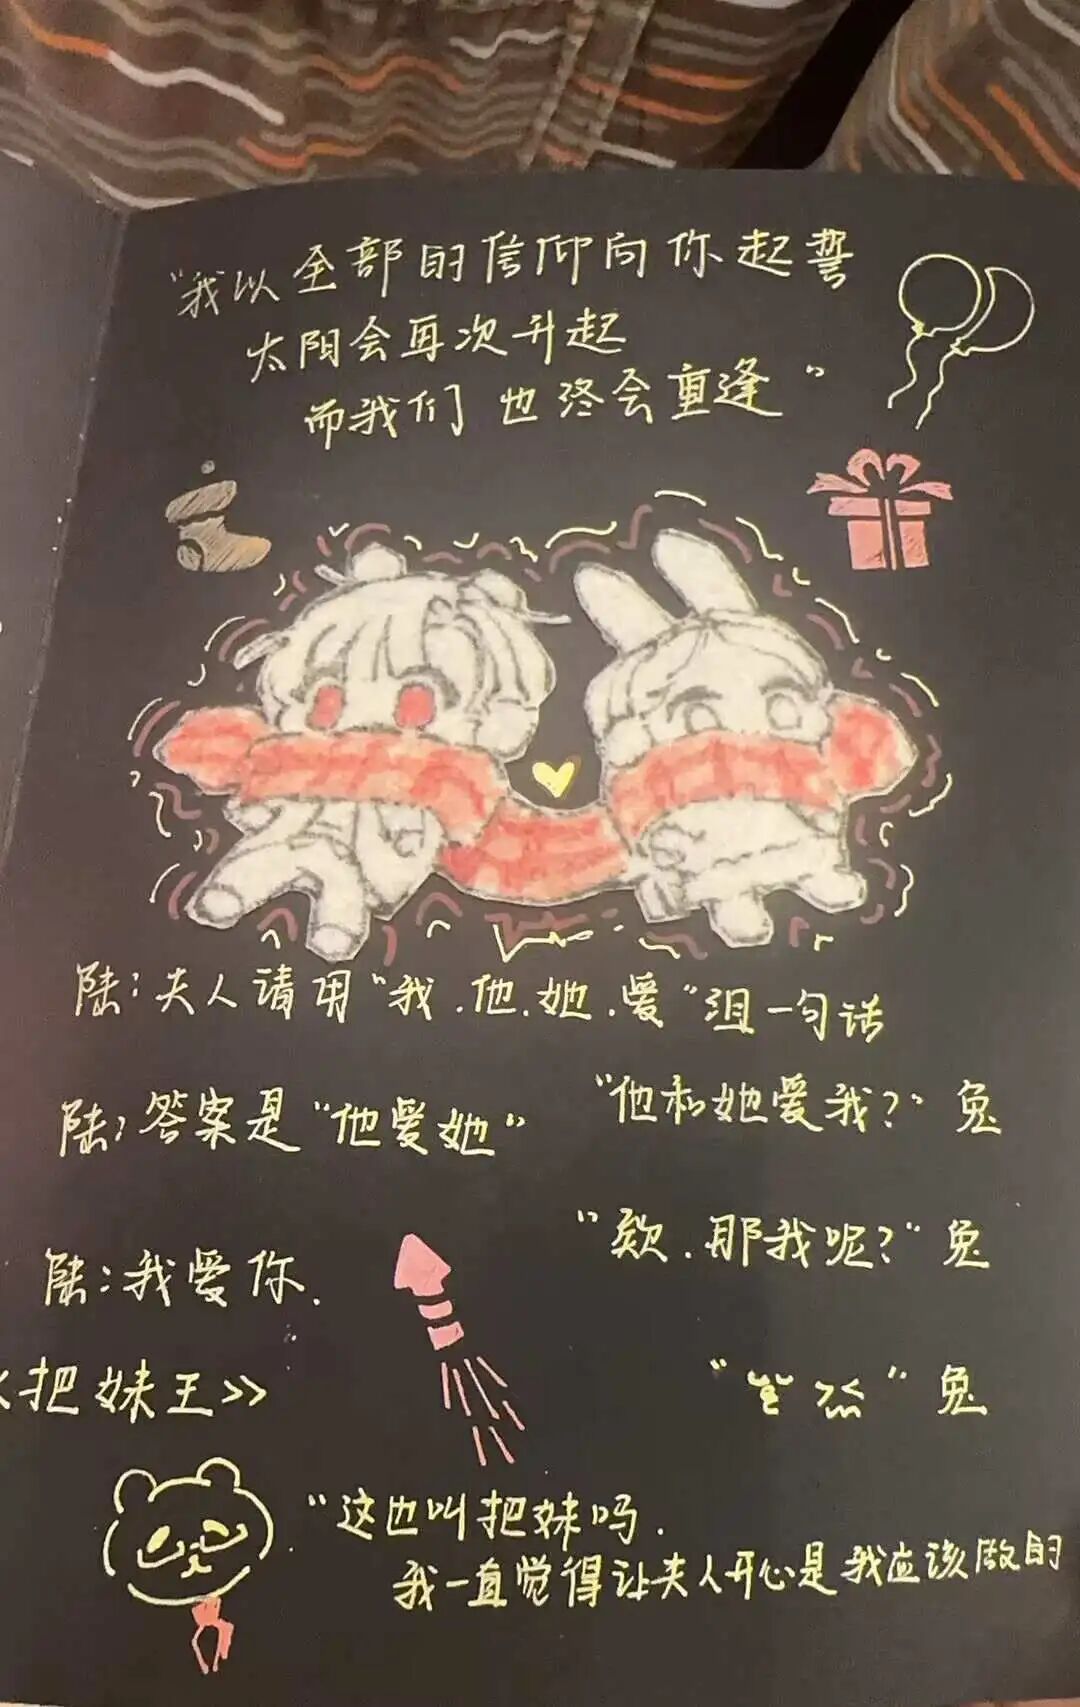 "我以全部的信仰向你起誓
太阳会再次升起
而我们也终会重逢"
陆:夫人请用"我.他.她.爱"组一句话
"他和她爱我?" 兔
陆:答案是"他爱她"
"欸.那我呢?" 兔
陆:我爱你.
" " 兔
《把妹王》
"这也叫把妹吗.
我一直觉得让夫人开心是我应该做的